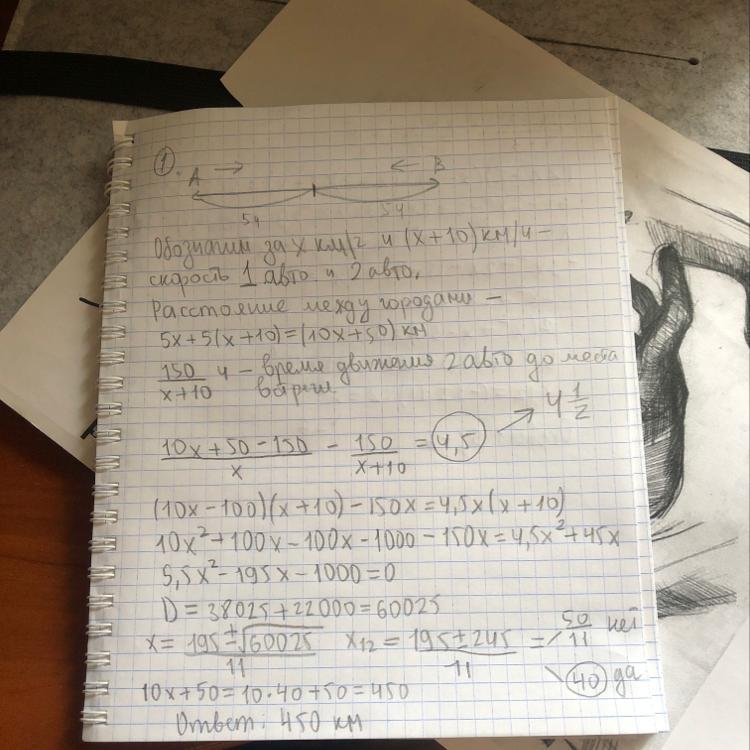 1.
A → ← B
5ч 5ч
Обозначим за x км/ч и (x+10) км/ч –
скорость 1 авто и 2 авто.
Расстояние между городами –
5x+5(x+10)=(10x+50) км
150/(x+10) ч – время движения 2 авто до места
встречи.
(10x+50-150)/x - 150/(x+10) = 4,5 → 4 1/2
(10x-100)(x+10)-150x=4,5x(x+10)
10x²+100x-100x-1000-150x=4,5x²+45x
5,5x²-195x-1000=0
D=38025+22000=60025
x= (195±√60025)/11 x12 = (195±245)/11 = -50/11 нет
40 да
10x+50=10·40+50=450
Ответ: 450 км